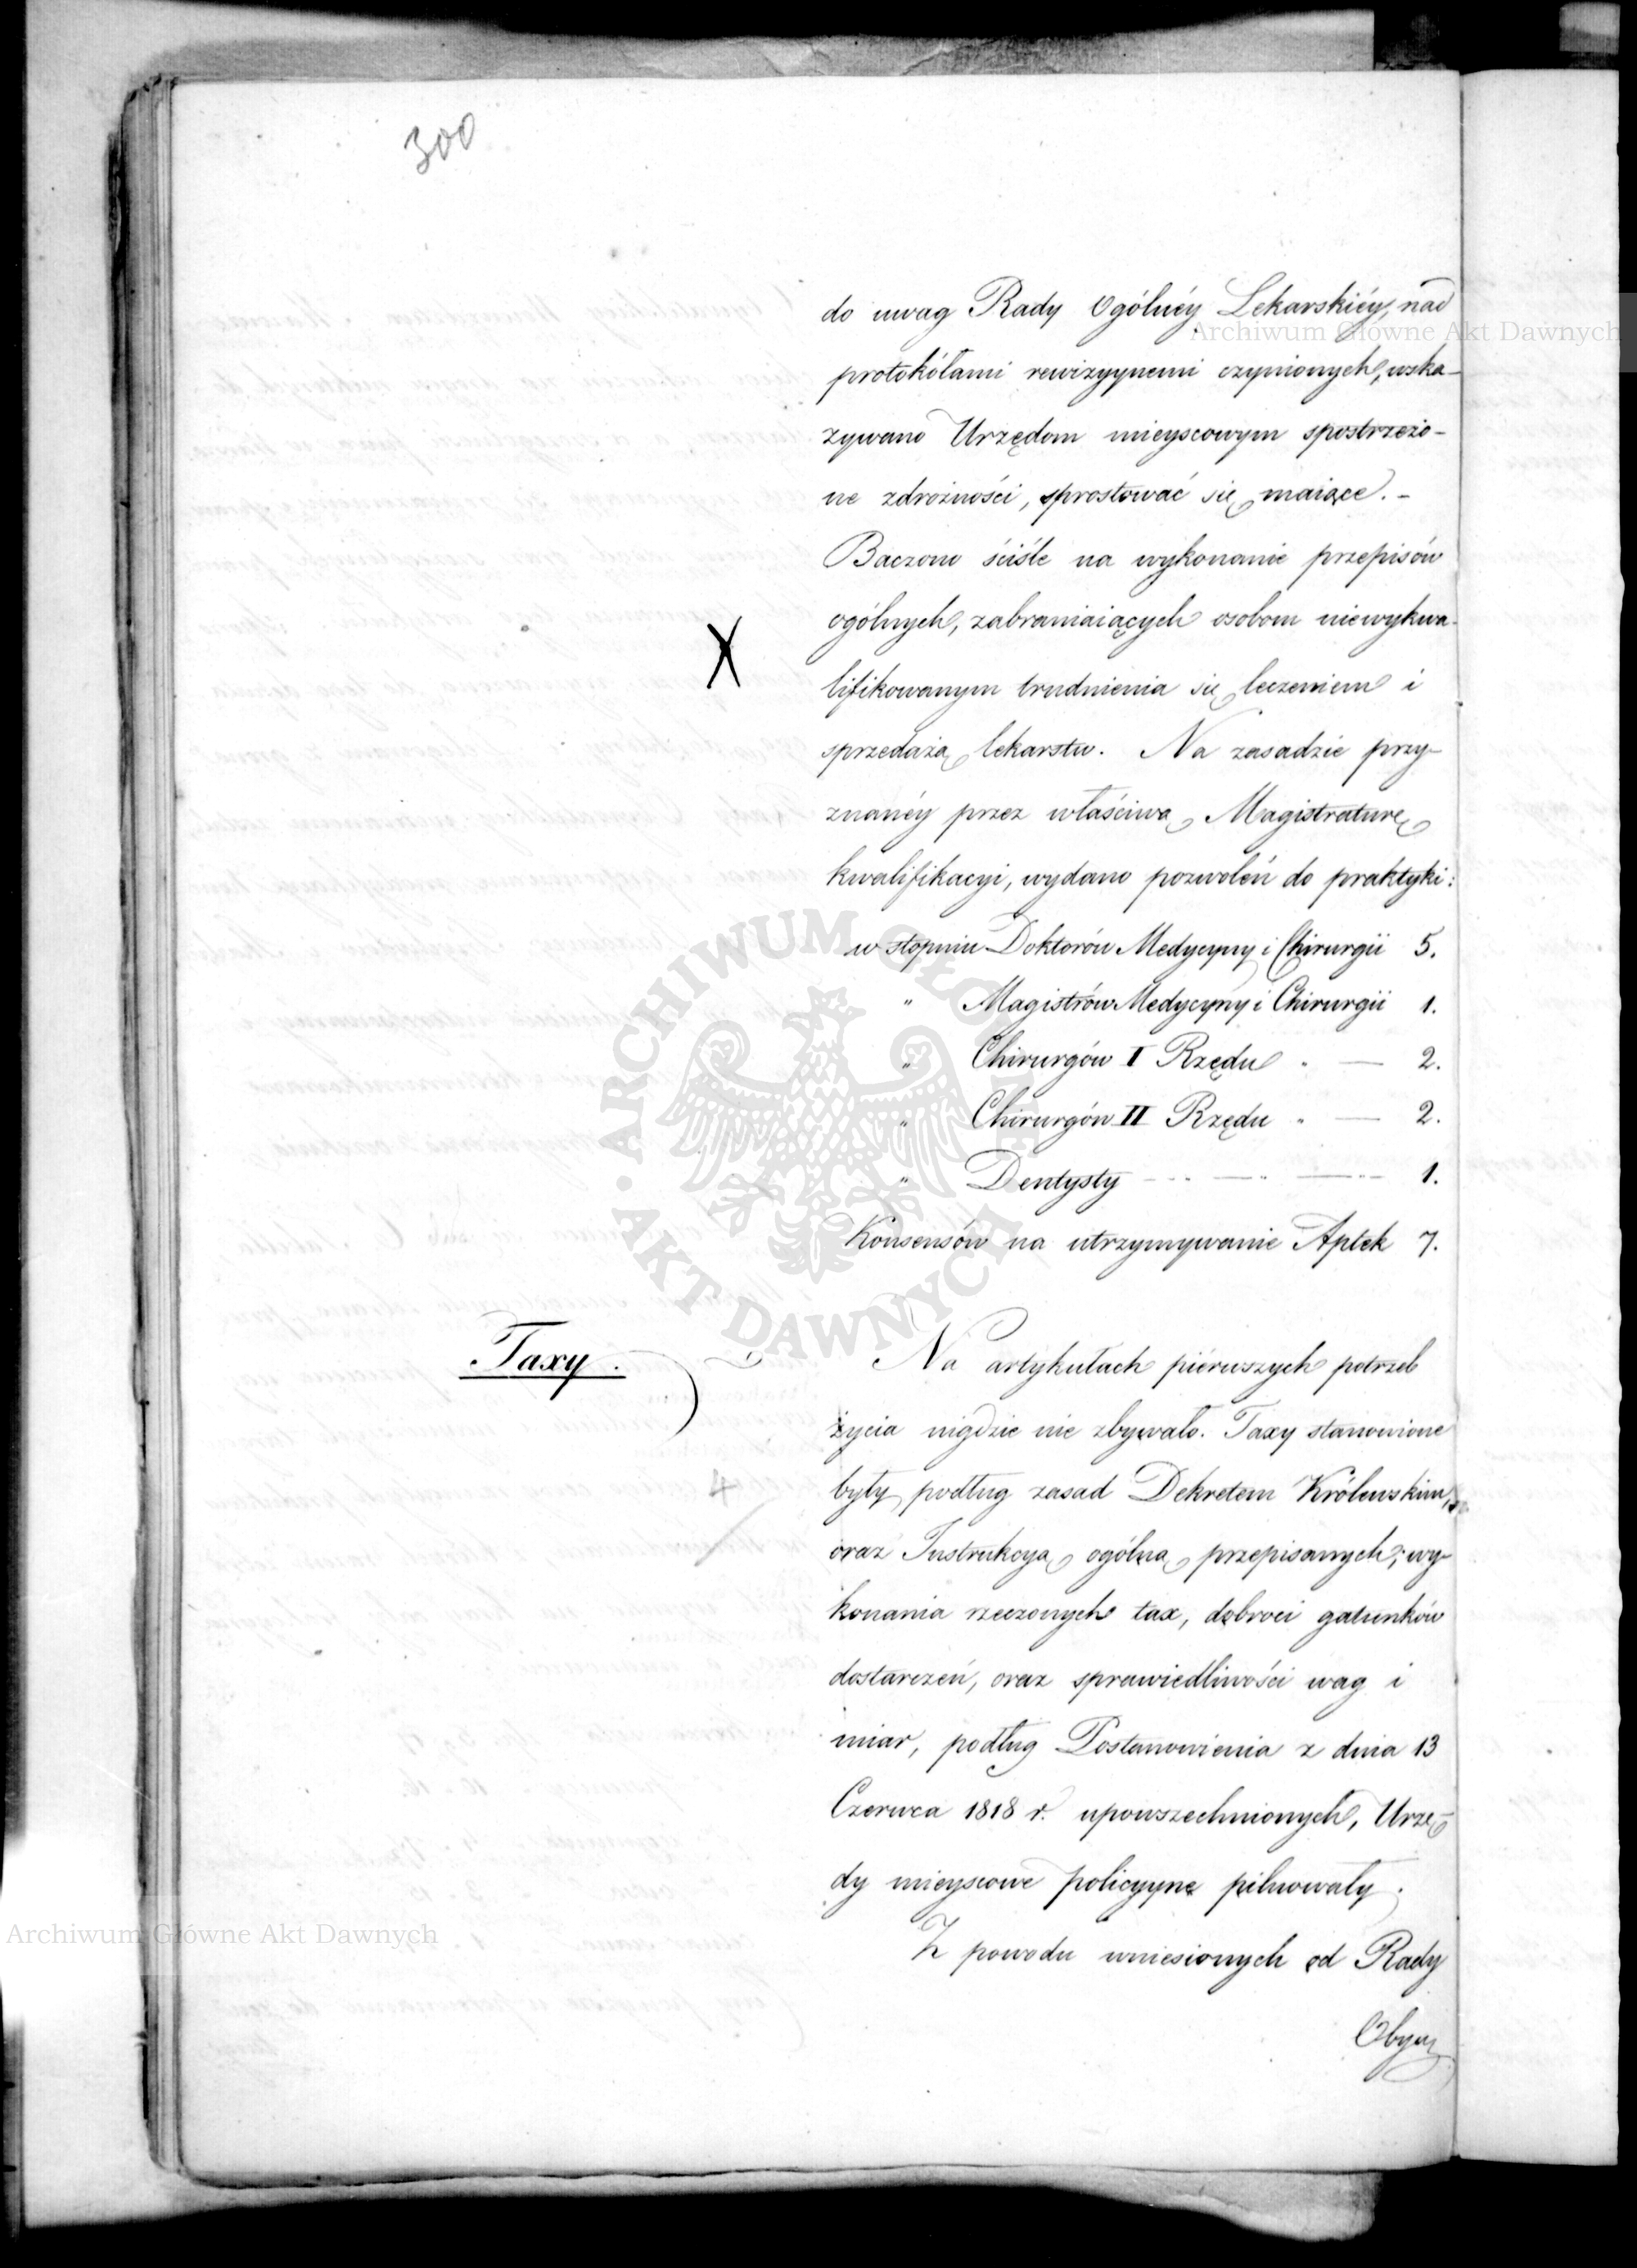 300
do uwag Rady Ogólnéy Lekarskiéy, nad
protokółami rewizyynemi czynionych, wska-
zywano Urzędom mieyscowym spostrzeżo-
ne zdrożności, sprostować się maiące. -
Baczono ściśle na wykonanie przepisów
ogólnych, zabraniaiących osobom niewykwa-
lifikowanym trudnienia się leczeniem i
sprzedażą lekarstw. Na zasadzie przy-
znanéy przez właściwą Magistraturę
kwalifikacyi, wydano pozwoleń do praktyki:
w stopniu Doktorów Medycyny i Chirurgii 5.
" Magistrów Medycyny i Chirurgii 1.
" Chirurgów I Rzędu " — 2.
" Chirurgów II Rzędu " — 2.
" Dentysty — 1.
Konsensów na utrzymywanie Aptek 7.
Taxy.
Na artykułach piérwszych potrzeb
życia nigdzie nie zbywało. Taxy stanowione
4
były podług zasad Dekretem Królewskim,
oraz Instrukcyą ogólną przepisanych; wy-
konania rzeczonych tax, dobroci gatunków
dostarczeń, oraz sprawiedliwości wag i
miar, podług Postanowienia z dnia 13
Czerwca 1818 r. upowszechnionych, Urzę-
dy mieyscowe policyyne pilnowały.
Z powodu wniesionych od Rady
Obyw
Archiwum Główne Akt Dawnych
ARCHIWUM GŁÓWNE AKT DAWNYCH
Archiwum Główne Akt Dawnych